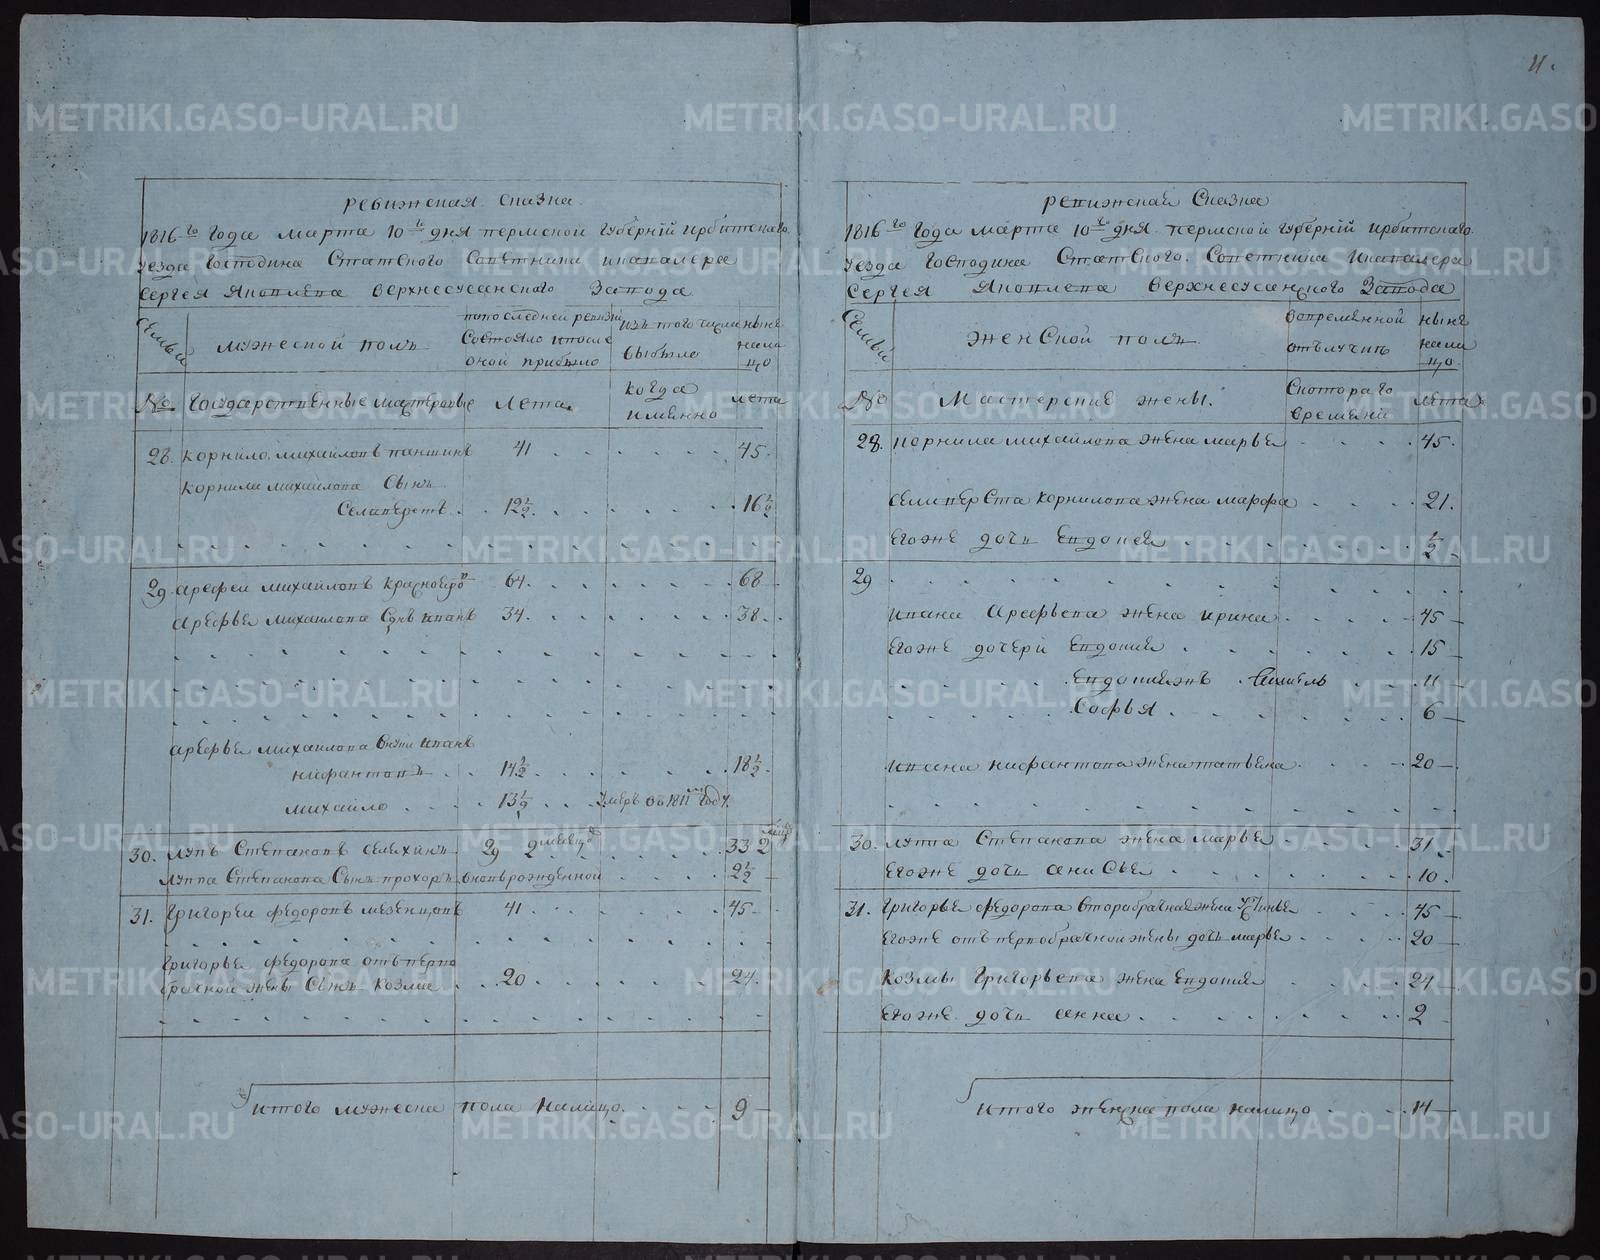 11.
Ревижская сказка
1816го Года марта 10го дня пермской губернїи ирбитскаго
уезда Господина Статского Советника икавалера
Сергея Яковлева верхнесусанского Завода
Семьи
мужеской полъ
попоследней ревизїи
Состояло ипосле
оной прибыло
изъ того числа
выбыло
ныне
нали
цо
No
Государственные мастеровые
Лета
когда
имянно
лета
28. корнило михайловъ пантинъ 41 45.
корнила михайлова Сынъ
Селиверстъ 12½ 16½
29. арефеи михайловъ 64. 68
арефья михайлова Сынъ иванъ 34. 38.
арефья михайлова внуки ивана
нифантовъ 14½ 18½
михайло 13½ умеръ въ 1811м году.
30. лупъ Степановъ 29 2 33 2
луппа Степанова Сынъ прохоръ вновьрожденной 2½
31. Григореи федоровъ мезенцовъ 41 45
Григорья федорова отъ перво
брачной жены Сынъ козма 20 24.
итого мужеска пола налицо 9
Ревижская Сказка
1816го Года марта 10го дня пермской губернїи ирбитскаго
уезда Господина Статского Советника икавалера
Сергея Яковлева верхнесусанского Завода
Семьи
женской полъ
вовременной
отълучки
ныне
нали
цо
No
Мастерские жены.
Скоторого
времяни
лета
28. корнила михайлова жена марья 45.
Селиверста корнилова жена марфа 21.
Егоже дочь Евдокея ½
29
ивана Арефьева жена ирина 45
Егоже дочери Евдокия 15
Евдокияжъ 11
Софья 6
ивана нифантова жена татьяна 20
30. луппа Степанова жена марья 31
Егоже дочь 10.
31. Григорья федорова второбрачная жена 45
Егоже отъ первобрачной жены дочь марья 20
козмы Григорьева жена Евдокия 24
Егоже дочь анна 2
итого женска пола налицо 14
METRIKI.GASO-URAL.RU